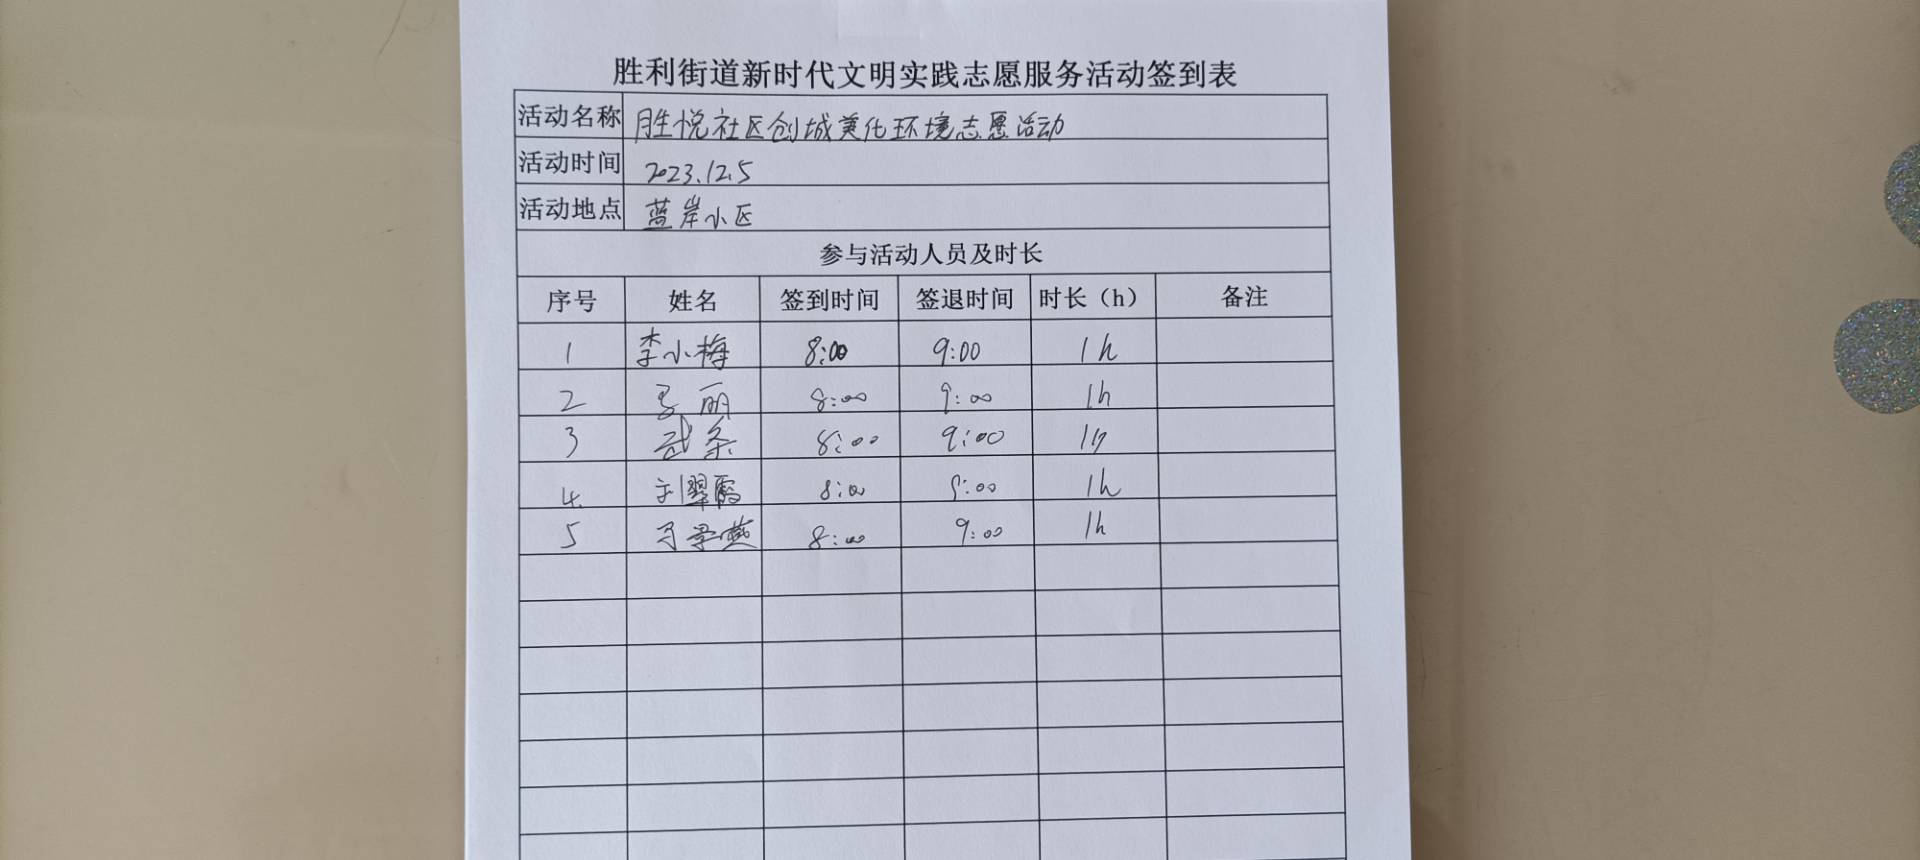 胜利街道新时代文明实践志愿服务活动签到表
活动名称 胜悦社区创城美化环境志愿活动
活动时间 2023.12.5
活动地点 蓝岸小区
参与活动人员及时长
序号 姓名 签到时间 签退时间 时长（h） 备注
1 李小梅 8:00 9:00 1h
2 丽 8:00 9:00 1h
3 武 8:00 9:00 1h
4. 刘翠霞 8:00 9:00 1h
5 马景燕 8:00 9:00 1h